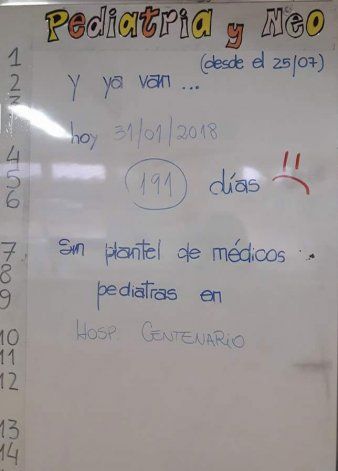 Pediatria y Neo
(desde el 25/07)
Y ya van ...
hoy 31/01/2018
191 días
Sin plantel de médicos
pediatras en
HOSP. CENTENARIO
1
2
3
4
5
6
7
8
9
10
11
12
13
14